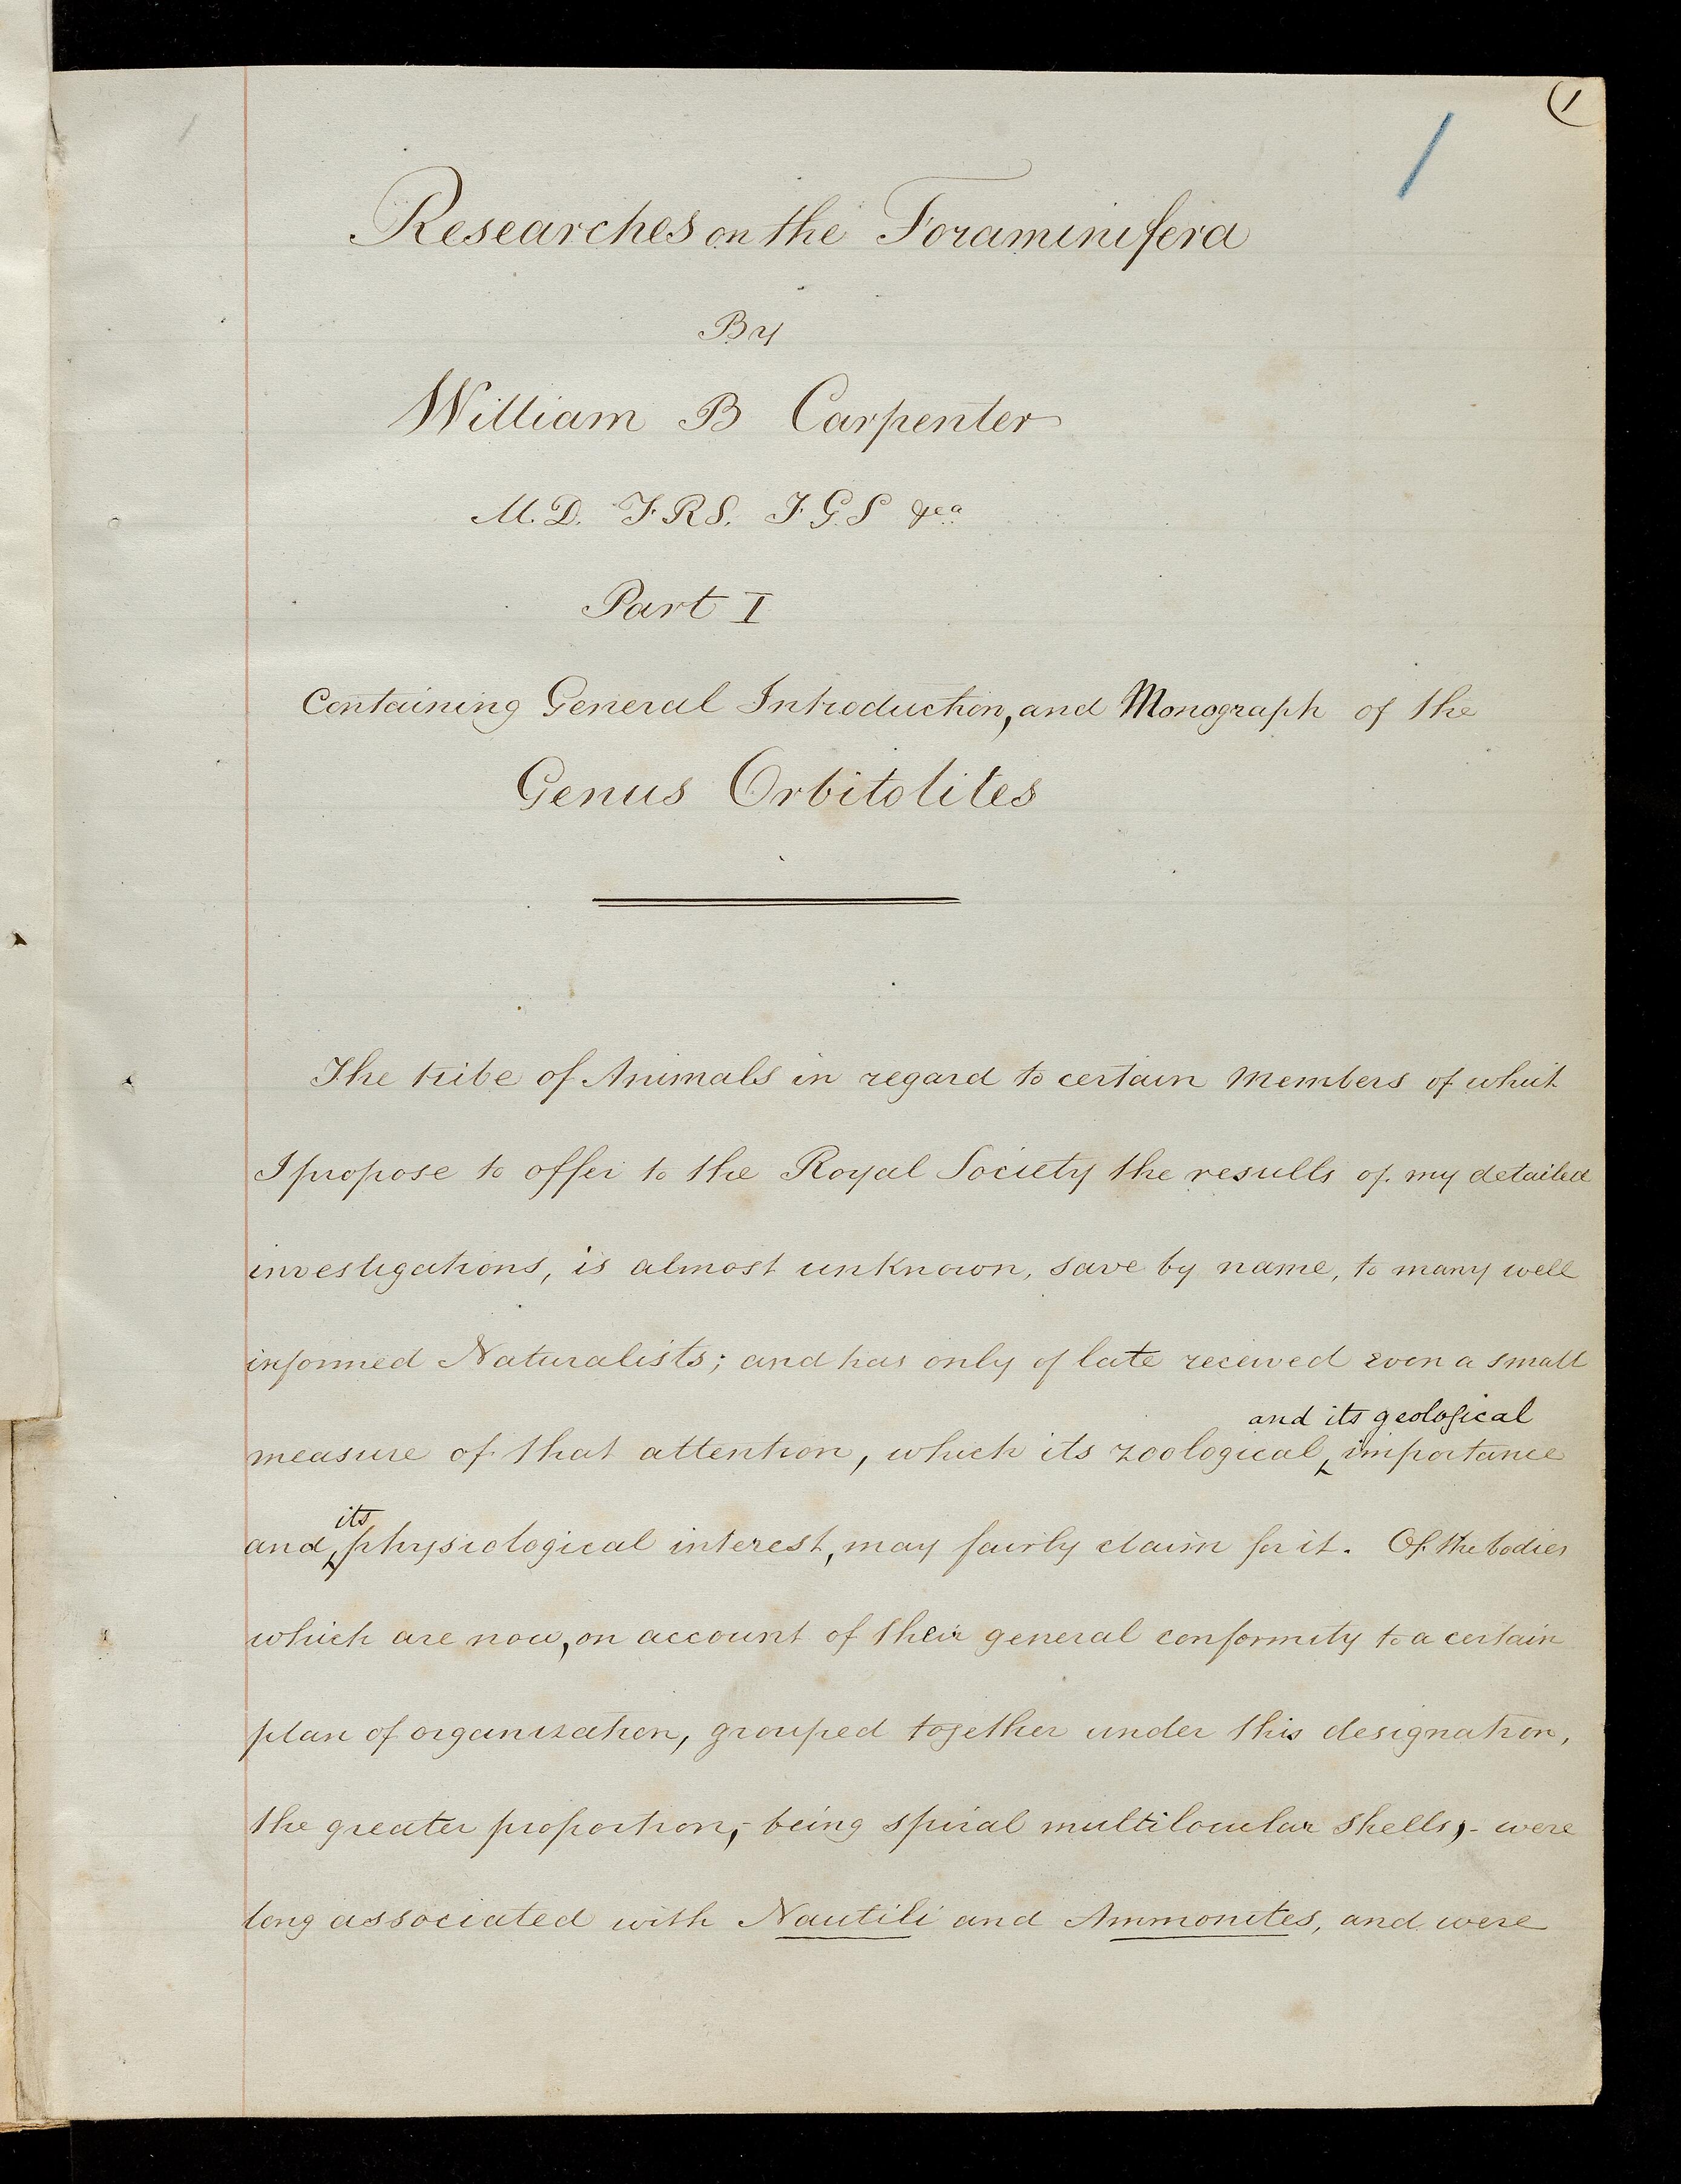 (1
/
Researches on the Foraminifera
By
William B Carpenter
M.D. F.R.S. F.G.S &ca
Part I
Containing General Introduction, and Monograph of the
Genus Orbitolites
The tribe of Animals in regard to certain Members of whit
I propose to offer to the Royal Society the results of my detailed
investigations, is almost unknown, save by name, to many well
informed Naturalists; and has only of late received even a small
and its geological
measure of that attention, which its zoological, importance
its
and physiological interest, may fairly claim for it. Of the bodies
which are now, on account of their general conformity to a certain
plan of organization, grouped together under this designation,
the greater proportion,- being spiral multilocular shells,- were
long associated with Nautili and Ammonites, and were